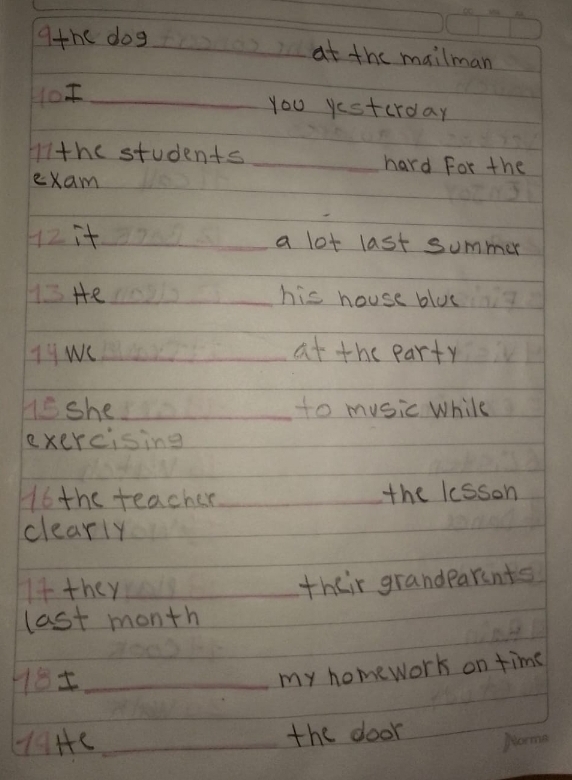 9 the dog ____________ at the mailman
10 I ____________ you yesterday
11 the students ____________ hard for the
exam
12 it ____________ a lot last summer
13 He ____________ his house blue
14 we ____________ at the party
15 she ____________ to music while
exercising
16 the teacher ____________ the lesson
clearly
17 they ____________ their grandparents
last month
18 I ____________ my homework on time
19 He ____________ the door
Norma